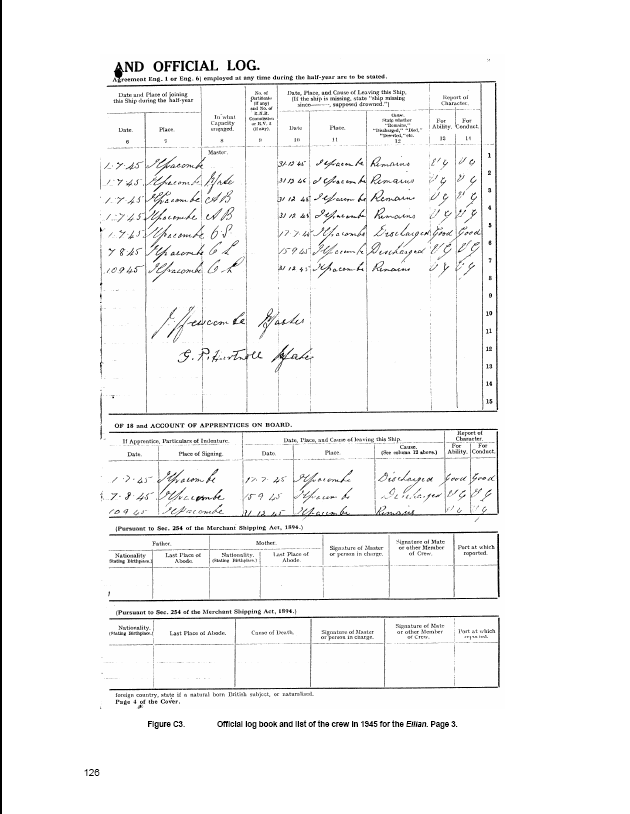 AND OFFICIAL LOG.
Agreement Eng. 1 or Eng. 6) employed at any time during the half-year are to be stated.
Date and Place of joining this Ship during the half-year
In what Capacity engaged.
No. of
(if any) and No. of R.N.R. Commission or R.V. 2 (if any).
Date, Place, and Cause of Leaving this Ship. (If the ship is missing, state "ship missing since———, supposed drowned.")
Report of Character.
Date. Place. Date Place. Cause. State whether "Remains," "Discharged," "Died," "Deserted," etc. For Ability. For Conduct.
6 7 8 9 10 11 12 13 14
Master.
1.7.45 Ilfracombe 31 12 45 Ilfracombe Remains V G V G 1
1.7.45 Ilfracombe Mate 31 12 45 Ilfracombe Remains V G V G 2
1.7.45 Ilfracombe A B 31 12 45 Ilfracombe Remains V G V G 3
1.7.45 Ilfracombe A B 31 12 45 Ilfracombe Remains V G V G 4
1.7.45 Ilfracombe O S 17.7.45 Ilfracombe Discharged Good Good 5
7 8 45 Ilfracombe 15 9 45 Ilfracombe Discharged V G V G 6
10 9 45 Ilfracombe 31 12 45 Ilfracombe Remains V G V G 7
8
9
10
Newcombe Master 11
G. P. Hartnoll Mate 12
13
14
15
OF 18 and ACCOUNT OF APPRENTICES ON BOARD.
If Apprentice, Particulars of Indenture. Date, Place, and Cause of leaving this Ship. Report of Character.
Date. Place of Signing. Date. Place. Cause. (See column 12 above.) For Ability. For Conduct.
1.7.45 Ilfracombe 17.7.45 Ilfracombe Discharged Good Good
7.8.45 Ilfracombe 15 9 45 Ilfracombe Discharged V G V G
10 9 45 Ilfracombe 31 12 45 Ilfracombe Remains V G V G
(Pursuant to Sec. 254 of the Merchant Shipping Act, 1894.)
Father. Mother. Signature of Master or person in charge. Signature of Mate or other Member of Crew. Port at which reported.
Nationality (Stating Birthplace.) Last Place of Abode. Nationality. (Stating Birthplace.) Last Place of Abode.
(Pursuant to Sec. 254 of the Merchant Shipping Act, 1894.)
Nationality. (Stating Birthplace.) Last Place of Abode. Cause of Death. Signature of Master or person in charge. Signature of Mate or other Member of Crew. Port at which reported.
foreign country, state if a natural born British subject, or naturalised.
Page 4 of the Cover.
Figure C3. Official log book and list of the crew in 1945 for the Eilian. Page 3.
126